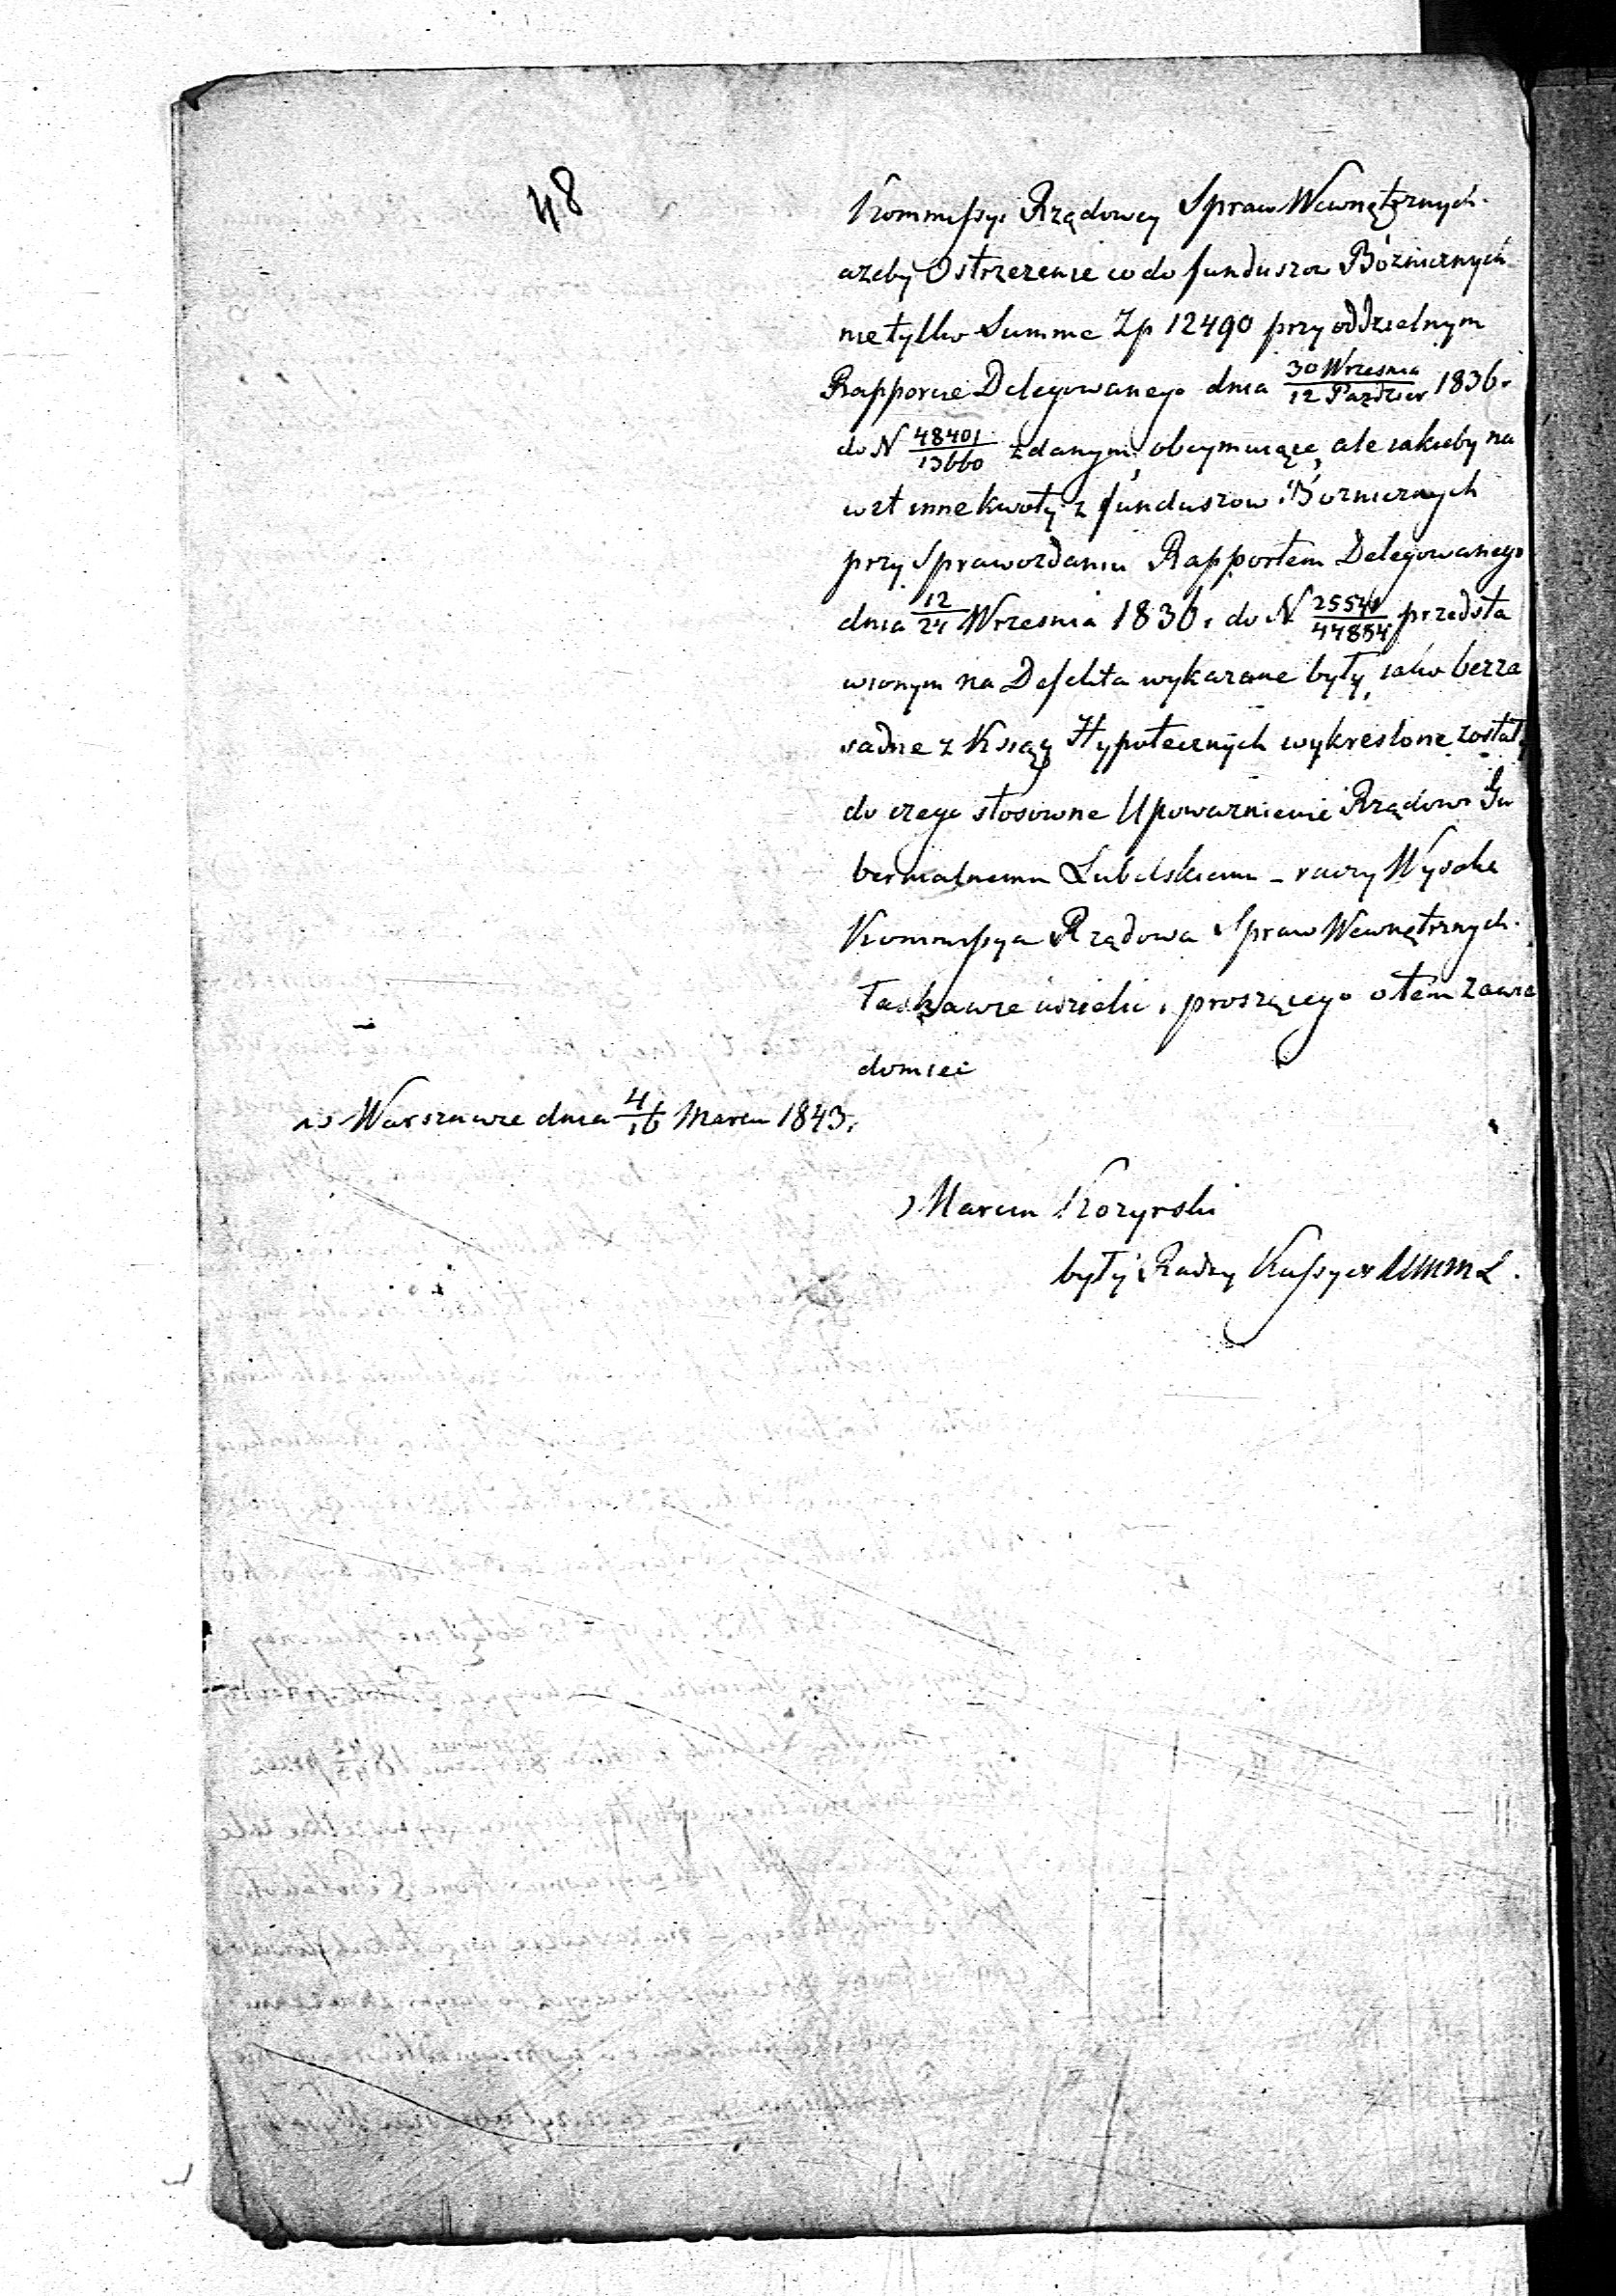 48
Kommissyi Rządowey Spraw Wewnętrznych
ażeby Ostrzeżenie co do funduszów Bóżnicznych
nietylko Summę Zp 12490 przy oddzielnym
Rapporcie Delegowanego dnia 30 Września / 12 Paździer 1836.
do N 48401/13660 zdanym, obeymuiące, ale iakieby na
wet inne kwoty z funduszow Bóżnicznych
przy Sprawozdaniu Rapportem Delegowanego
dnia 12/24 Września 1836. do N 25541/44854 przedsta
wionym na Defekta wykazane były, iako bezza
sadne z Ksiąg Hypotecznych wykreślone zostały
do czego stosowne Upoważnienie Rządowi Gu
bernialnemu Lubelskiemu – raczy Wysoka
Kommissya Rządowa Spraw Wewnętrznych
łaskawie udzielić, i proszącego o tem zawia
domieć
w Warszawie dnia 4/16 Marca 1843.
Marcin Kozyrski
były Radzy Kassyer